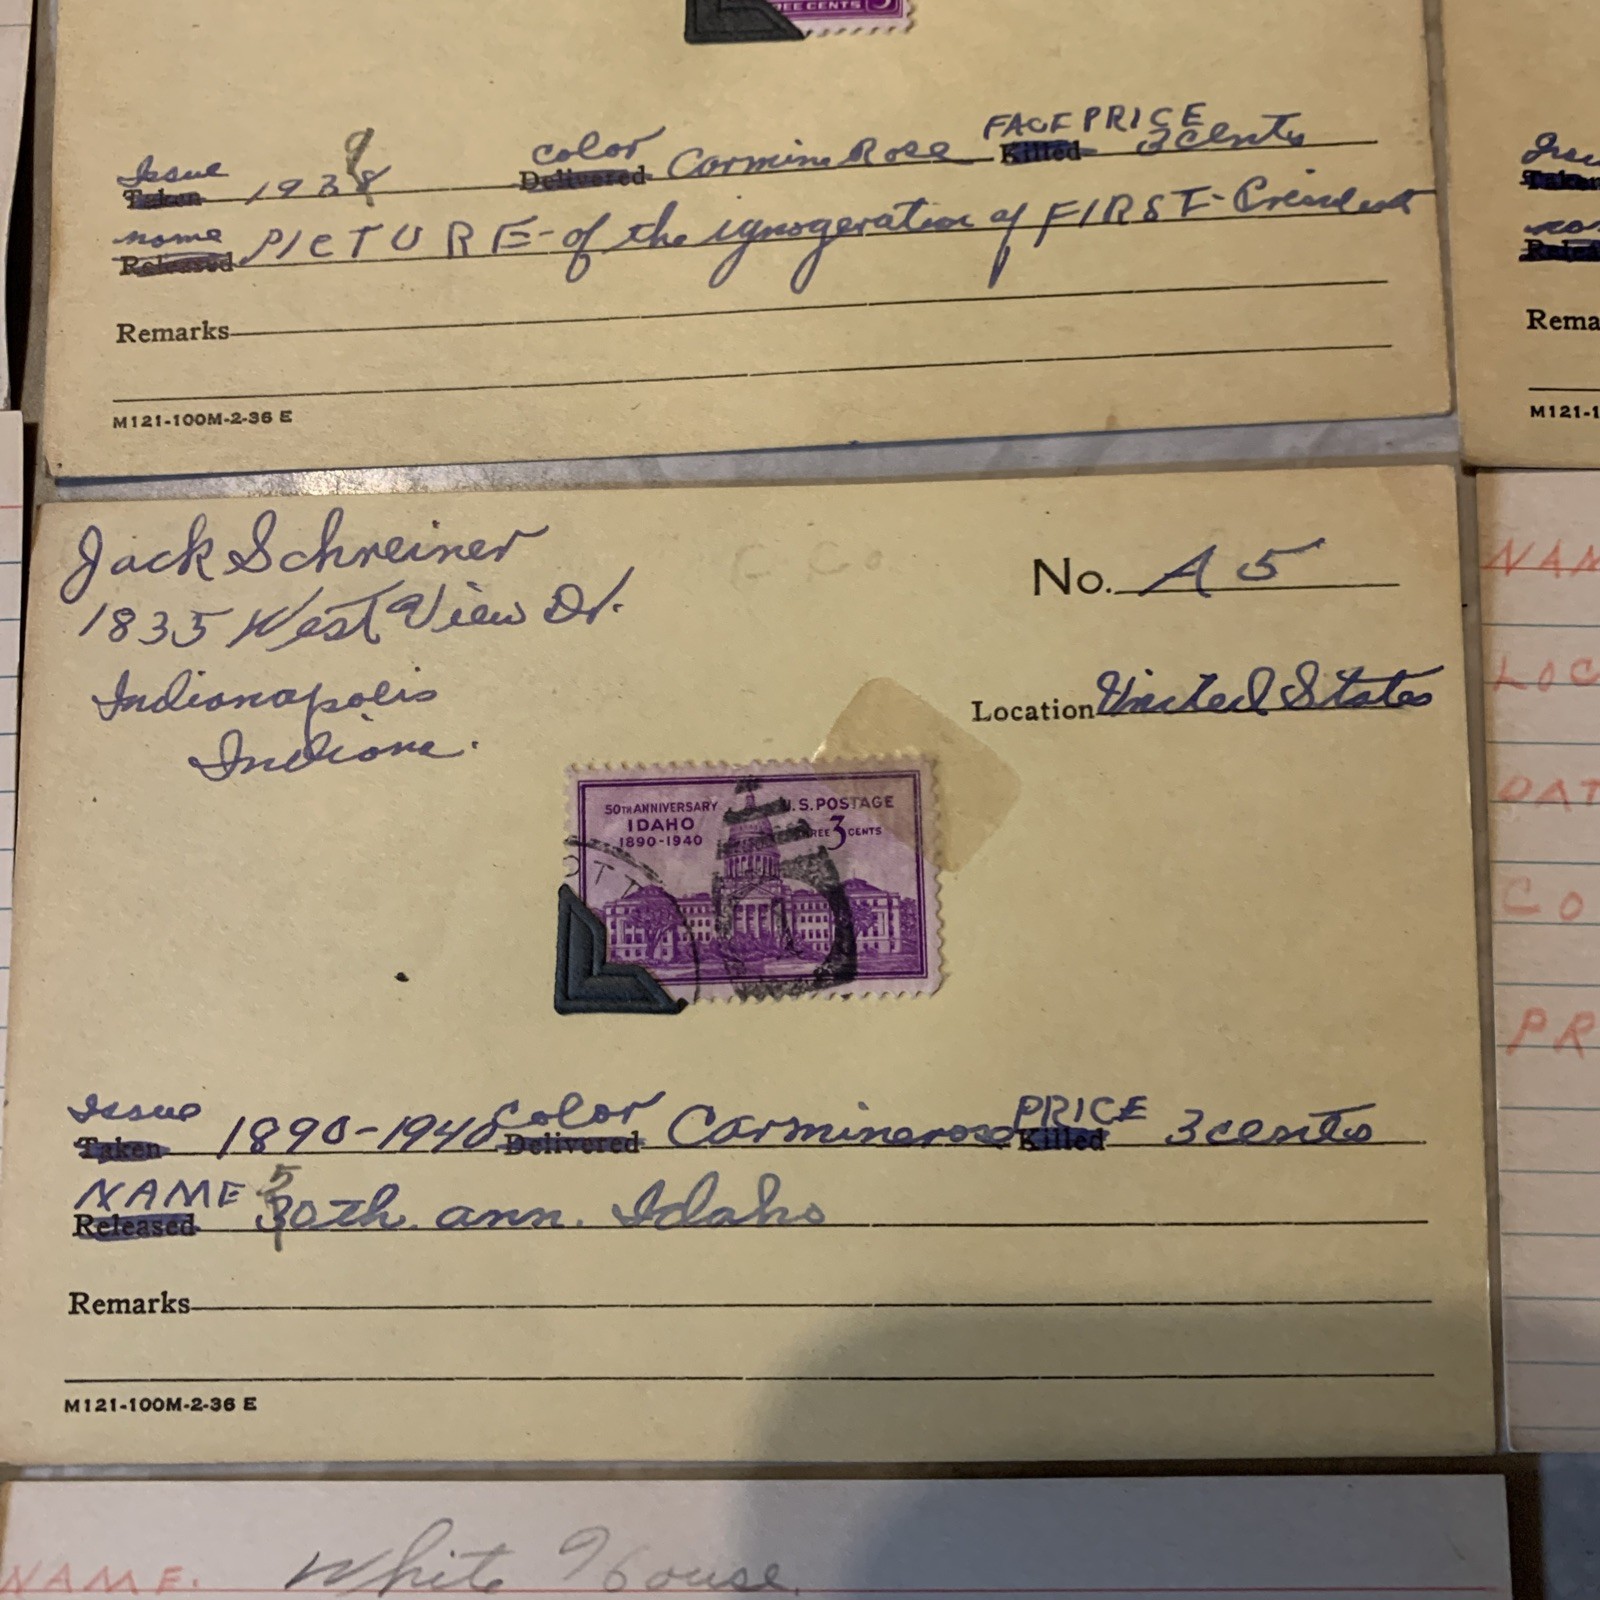 REE CENTS 3
FACE PRICE
Issue 9 color
Taken 1938 Delivered Carmine Rose Killed 3 cents
name
Released PICTURE - of the ignogeration of FIRST - President
Remarks
M121-100M-2-36 E
Jack Schreiner
1835 West View Dr.
Indianapolis
Indiana.
No. A 5
Location United States
50TH ANNIVERSARY
IDAHO
1890-1940
U.S. POSTAGE
REE 3 CENTS
Issue Color PRICE
Taken 1890-1940 Delivered Carminerose Killed 3 cents
NAME 5
Released 30th. ann. Idaho
Remarks
M121-100M-2-36 E
Rema
M121-1
NAM
LOC
DAT
CO
PR
NAME. White House.